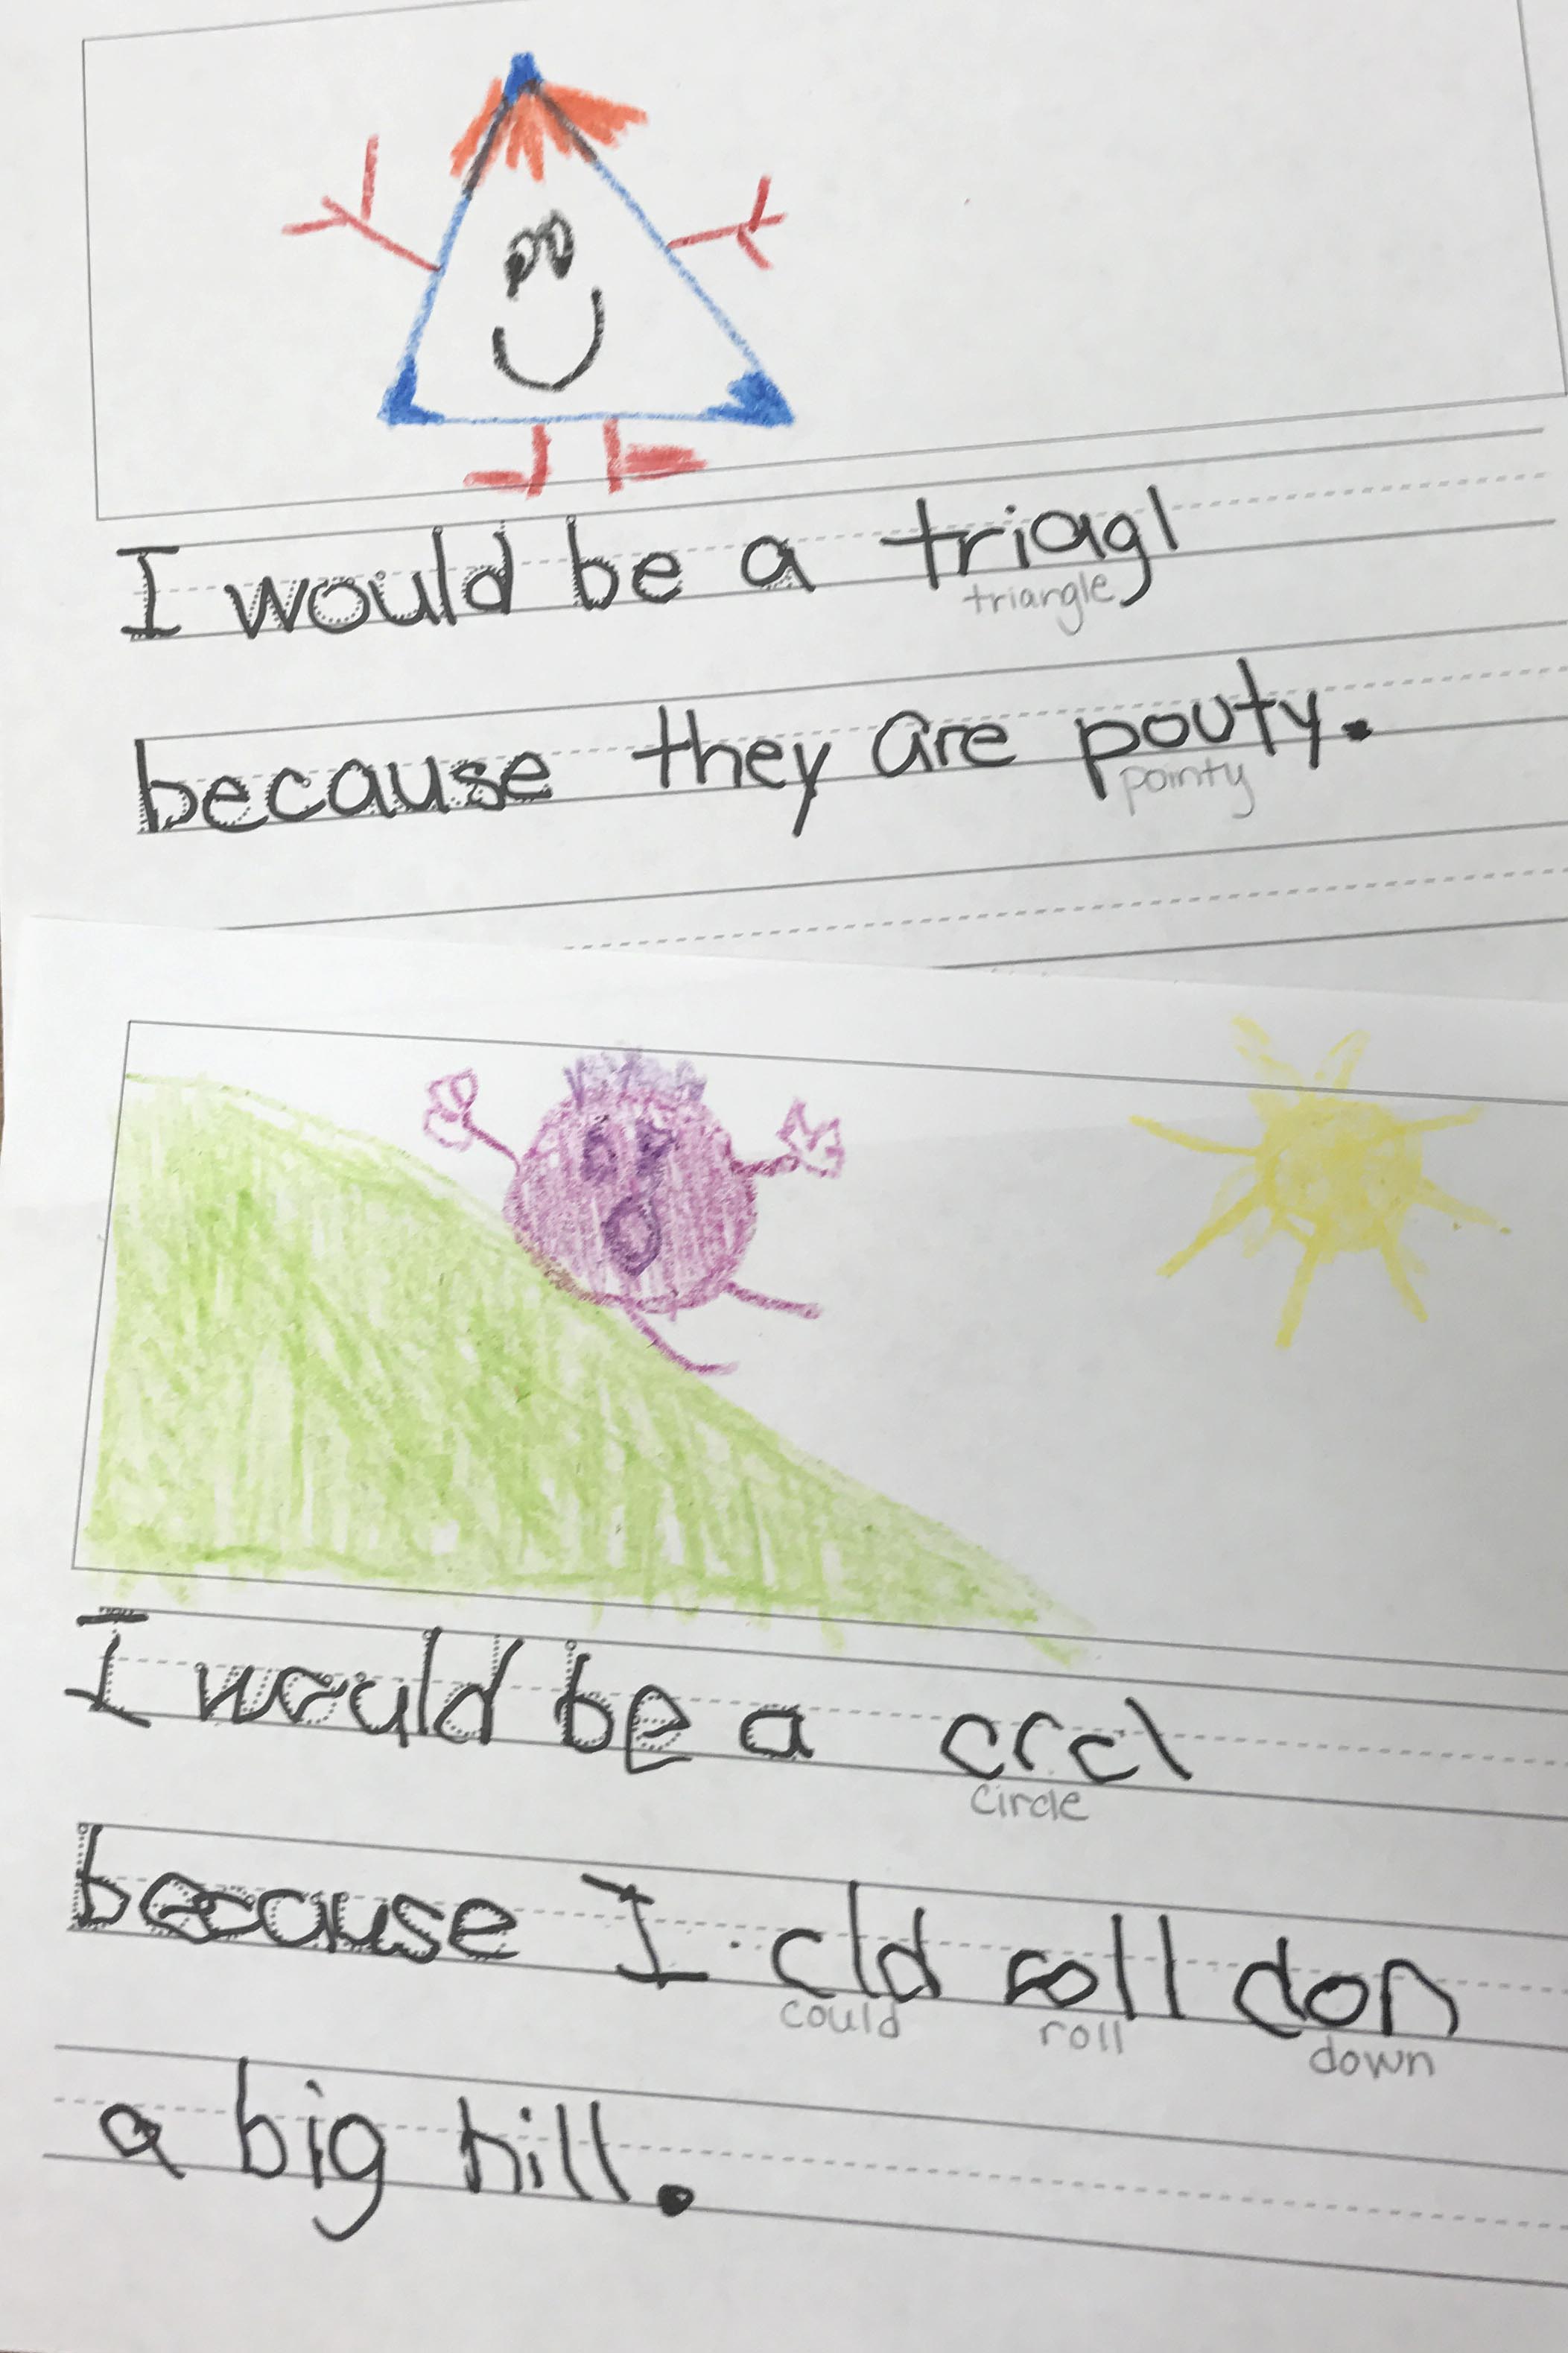 I would be a triagl
triangle
because they are pouty.
pointy
I would be a crcl
circle
because I cld roll don
could roll down
a big hill.